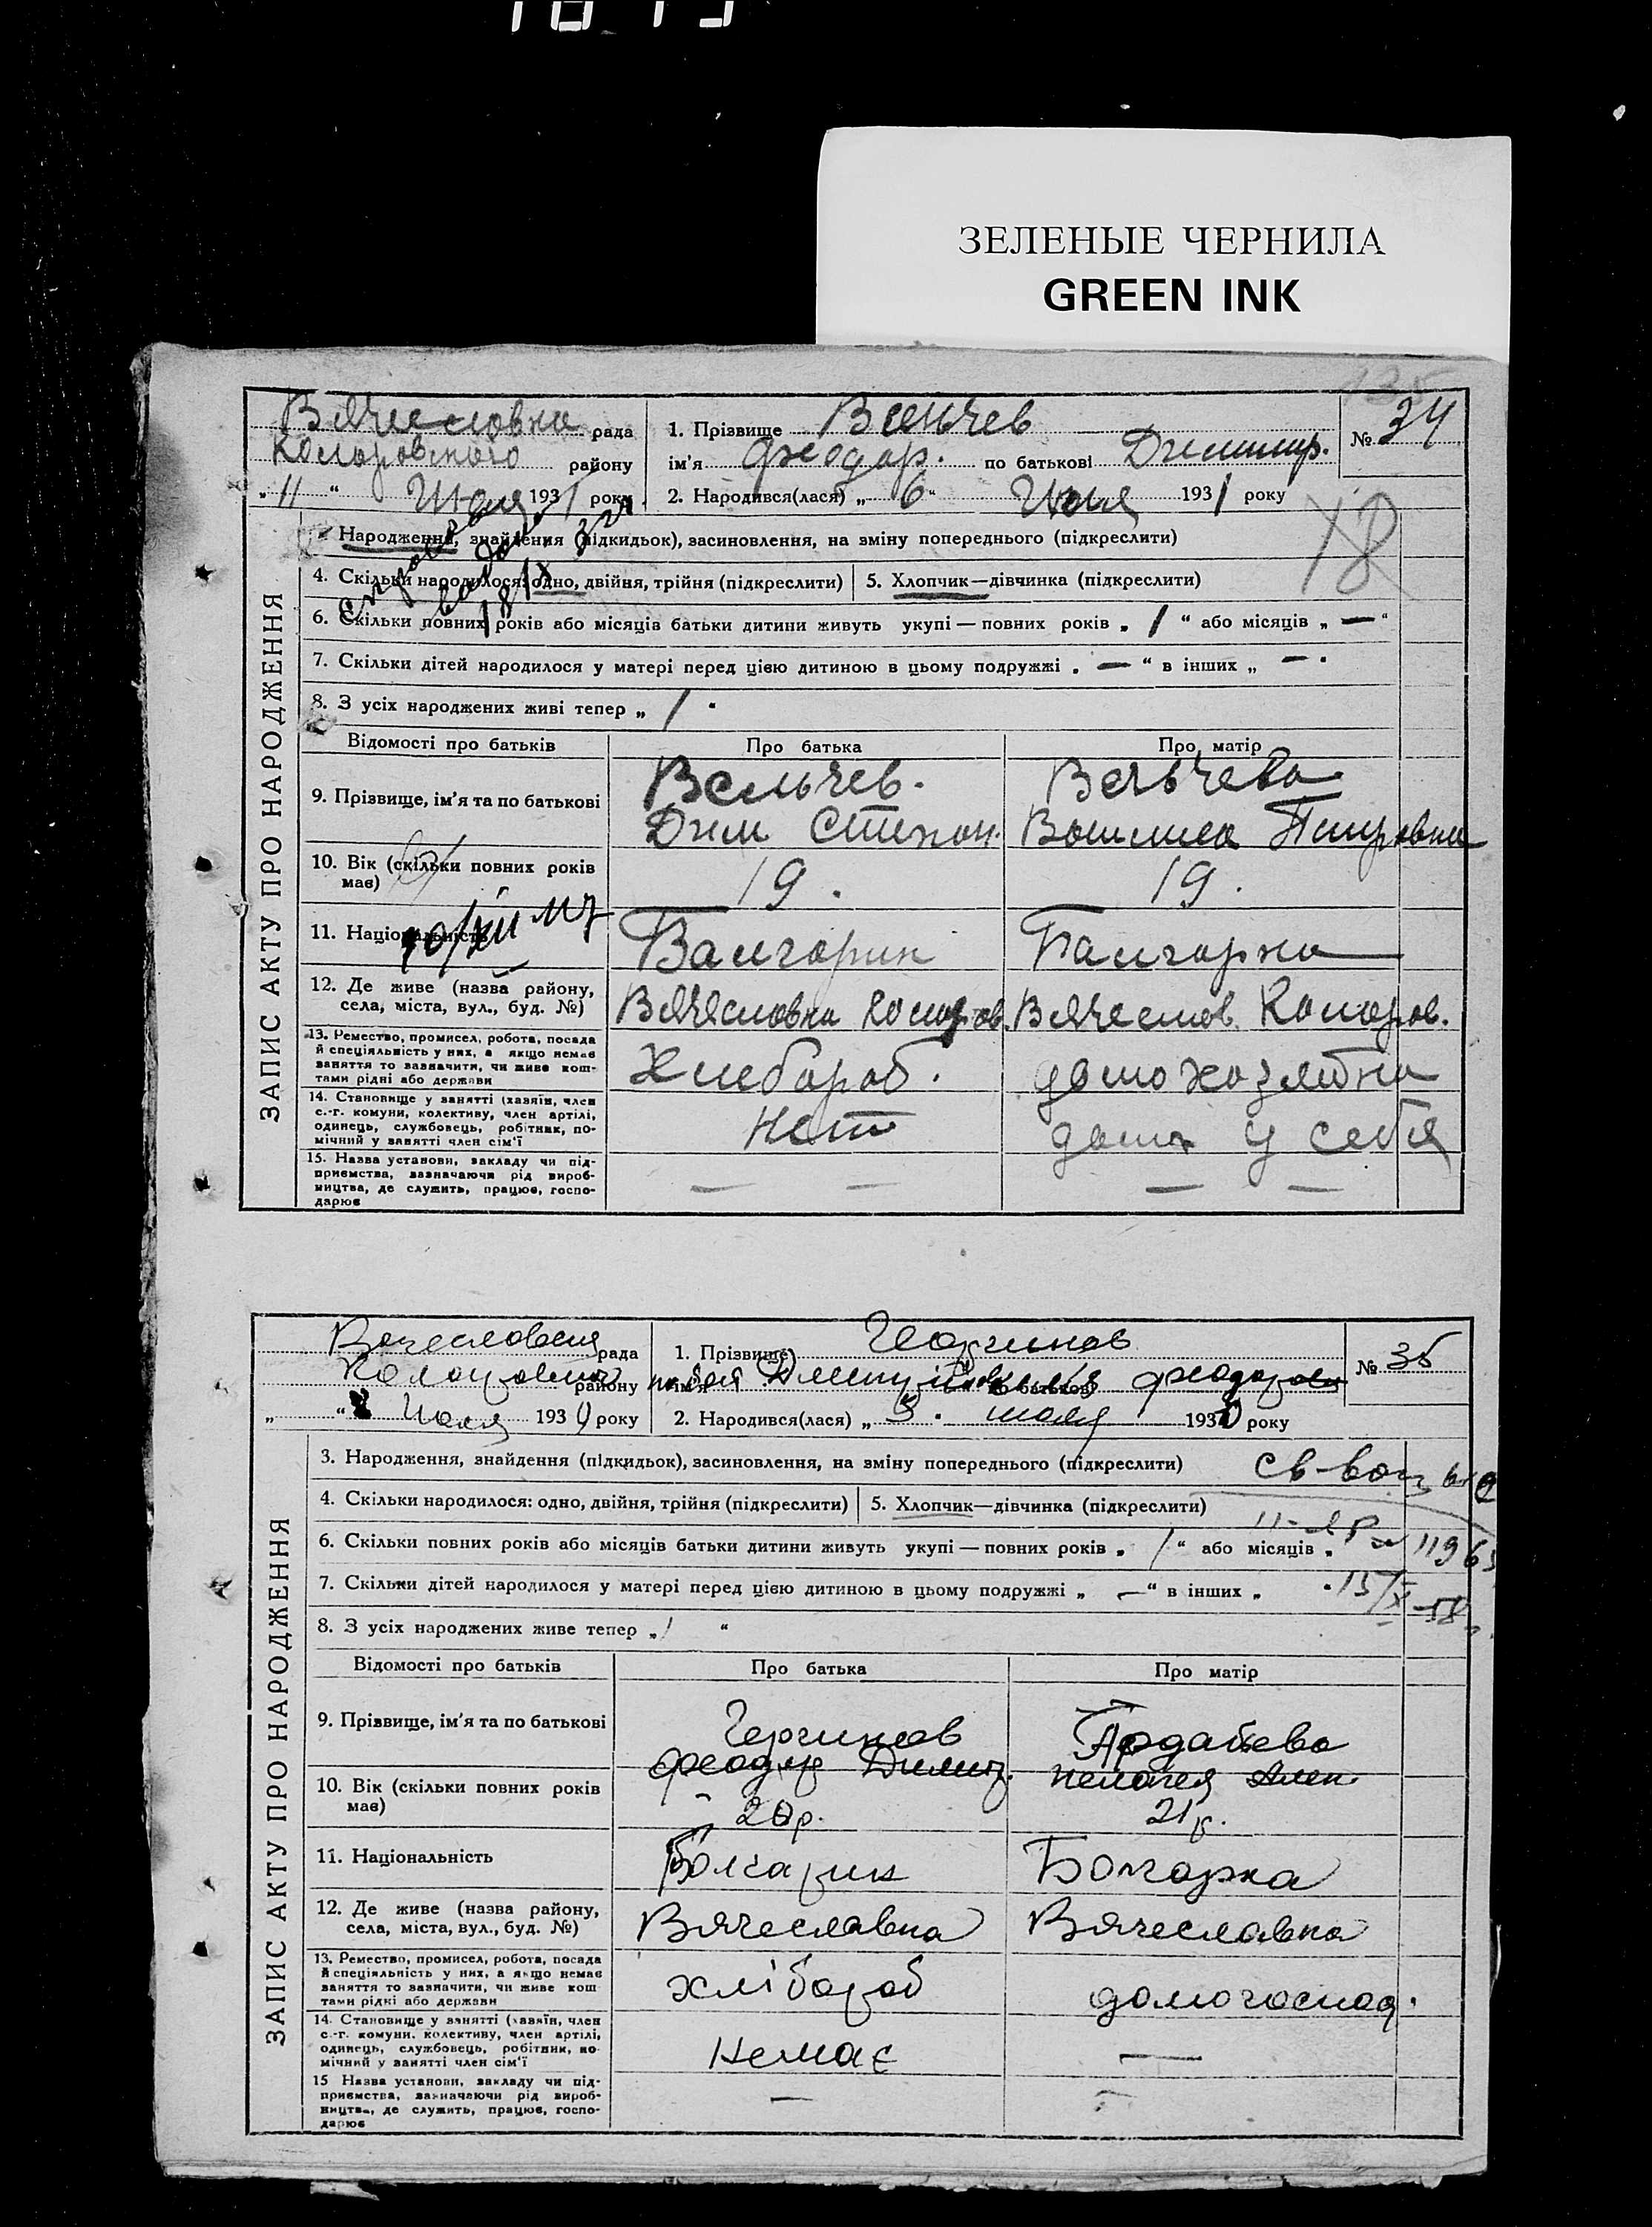 ЗЕЛЕНЫЕ ЧЕРНИЛА
GREEN INK
Вячесловка рада
Коларовского району
„ 11 “ Июля 1931 року
1. Прізвище Вельчев
ім'я Феодор. по батькові Дмитр.
2. Народився(лася) „ 6 “ Июля 1931 року
№ 34
18
ЗАПИС АКТУ ПРО НАРОДЖЕННЯ
Народження, знайдення (підкидьок), засиновлення, на зміну попереднього (підкреслити)
4. Скільки народилося: одно, двійня, трійня (підкреслити) 5. Хлопчик—дівчинка (підкреслити)
6. Скільки повних років або місяців батьки дитини живуть укупі — повних років „ 1 “ або місяців „ — “
7. Скільки дітей народилося у матері перед цією дитиною в цьому подружжі „ — “ в інших „ — “
8. З усіх народжених живі тепер „ 1 “
Відомості про батьків Про батька Про матір
9. Прізвище, ім'я та по батькові
Вельчев. Вельчева
Дим Степан.
10. Вік (скільки повних років має) 19. 19.
11. Національність Балгарин Балгарка
12. Де живе (назва району, села, міста, вул., буд. №) Вячесловка Коларов. Вячеслов. Коларов.
13. Ремество, промисел, робота, посада
й спеціяльність у них, а якщо немає
заняття то зазначити, чи живе кош-
тами рідні або держави
Хлебороб. домохозяйка
14. Становище у занятті (хазяїн, член
с.-г. комуни, колективу, член артілі,
одинець, службовець, робітник, по-
мічний у занятті член сім'ї
Нет дома у себя
15. Назва установи, закладу чи під-
приємства, зазначаючи рід вироб-
ництва, де служить, працює, госпо-
дарює
— — — —
рада
Коларовского району
Июля 193 року
1. Прізвище Чергинов
ім'я по батькові
2. Народився(лася) „ 5. июля 193 року
№ 35
ЗАПИС АКТУ ПРО НАРОДЖЕННЯ
3. Народження, знайдення (підкидьок), засиновлення, на зміну попереднього (підкреслити)
4. Скільки народилося: одно, двійня, трійня (підкреслити) 5. Хлопчик—дівчинка (підкреслити)
6. Скільки повних років або місяців батьки дитини живуть укупі — повних років „ 1 “ або місяців „
7. Скільки дітей народилося у матері перед цією дитиною в цьому подружжі „ — “ в інших „
8. З усіх народжених живе тепер „ 1 “
Відомості про батьків Про батька Про матір
9. Прізвище, ім'я та по батькові
Чергинов
Феодор Димит. Пелагея Алек.
10. Вік (скільки повних років має) 20р. 21р.
11. Національність Болгарин Болгарка
12. Де живе (назва району, села, міста, вул., буд. №) Вячеславка Вячеславка
13. Ремество, промисел, робота, посада
й спеціяльність у них, а якщо немає
заняття то зазначити, чи живе кош-
тами рідні або держави
хлібороб домогоспод.
14. Становище у занятті (хазяїн, член
с.-г. комуни, колективу, член артілі,
одинець, службовець, робітник, по-
мічний у занятті член сім'ї
Немає —
15 Назва установи, закладу чи під-
приємства, зазначаючи рід вироб-
ництва, де служить, працює, госпо-
дарює
— —